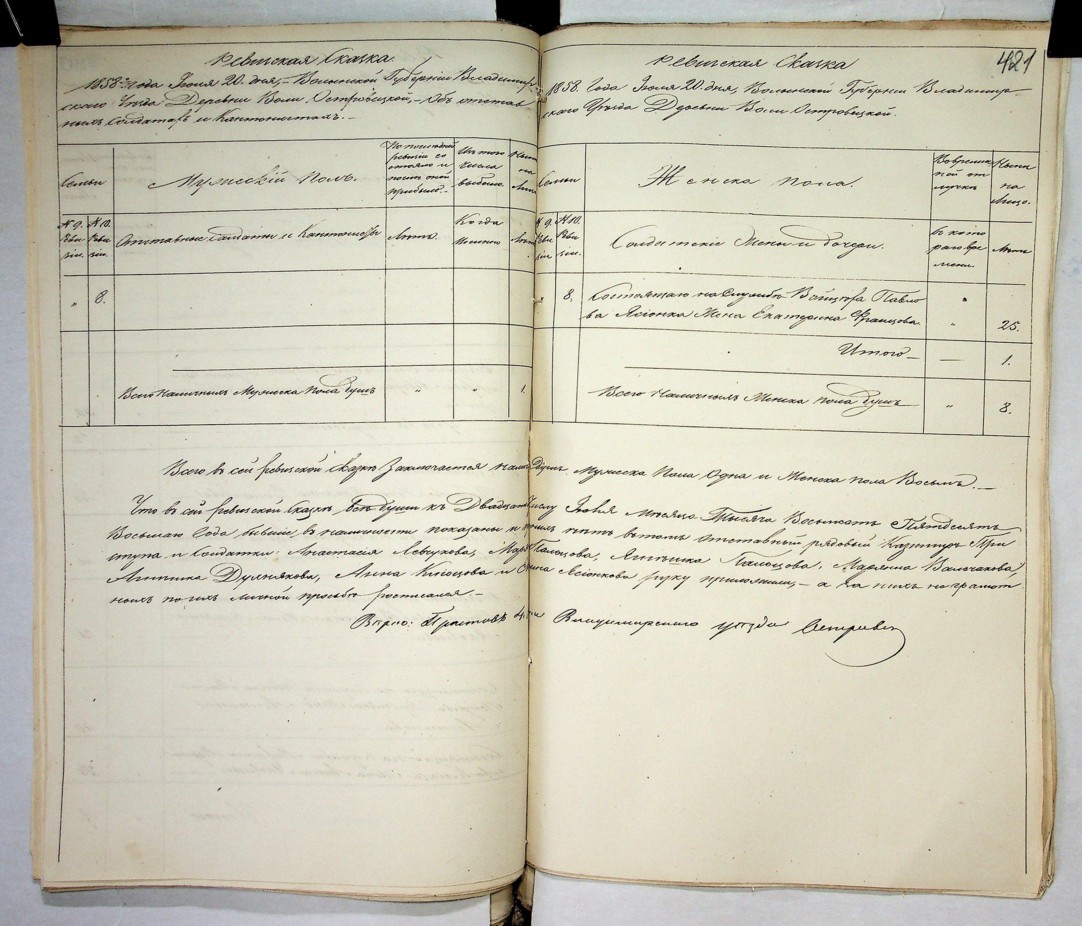 421
Ревизская Сказка
1858 года Июня 20. дня, – Волынской Губернии Владимир-
скаго Уезда Деревни Воли Островецкой, – Объ отстав
ныхъ Солдатахъ и Кантонистахъ. –
Семьи
Мужескій Полъ.
По последней ревизіи состояло и после оной прибыло. –
Изъ того числа выбыло
Ныне на лицо
№ 9. Реви зіи.
№ 10. Реви зіи.
Отставные Солдаты и Кантонисты
Лета.
Когда именно
Лета
" 8.
Всего наличныхъ Мужеска Пола душъ " " 1.
Ревизская Сказка
1858. Года Июня 20 дня, Волынской Губернии Владимир-
скаго Уезда Деревни Воли Островецкой.
Семьи
Женска пола.
Во временной отлучке
Ныне на Лицо.
№ 9. Реви зіи.
№ 10. Реви зіи.
Солдатскіе Жены и дочери.
Съ кото раго вре мени.
Лета
" 8. Состоящаго на Службе Войцеха Павло "
ва Ясіонка Жена Екатерина Францова. " 25.
Итого – — 1.
Всего Наличныхъ Женска пола душъ " 8.
Всего въ сей ревизской Сказке Заключается налич душъ Мужеска Пола Одна и Женска пола Восемь. –
Что въ сей ревизской Сказке все души къ Двадцат Числу Июня Месяца Тысяча Восемьсотъ Пятдесятъ
Восьмаго Года, бывшіе въ наличности показаны и въ томъ отставный рядовый Казимиръ При
ступа и Солдатки: Анастасія Левчукова, Мар Палюцова, Агнешка Палюцова, Марьяна Вальчакова
Агнешка Дулнякова, Анна и Ясіонкова руку приложили, – а за нихъ неграмот
ныхъ по ихъ личной прозьбе росписался. –
Верно: Приставъ 4. Владимирскаго уезда